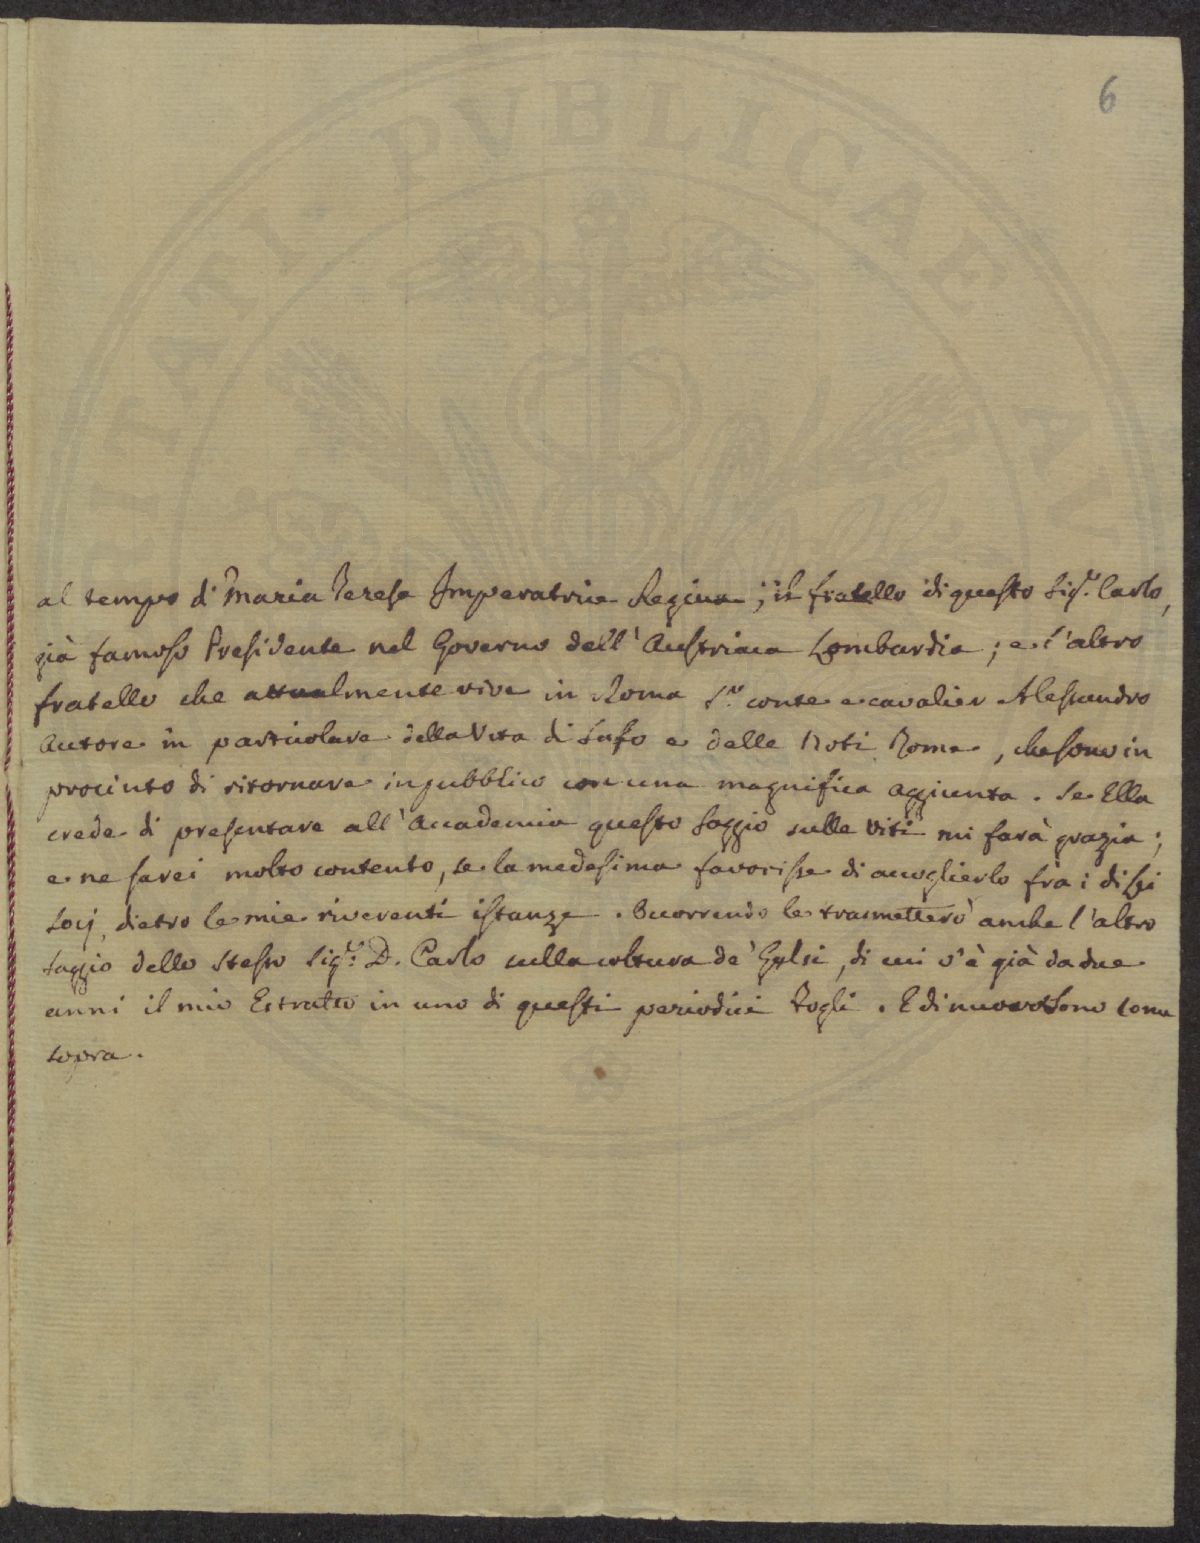 6
al tempo di Maria Teresa Imperatrice Regina; il fratello di questo Sig.r Carlo,
già famoso Presidente nel Governo dell'Austriaca Lombardia; e l'altro
fratello che attualmente vive in Roma S.r conte e cavalier Alessandro
Autore in particolare della Vita di Safo e delle Noti Rome, che sono in
procinto di ritornare in pubblico con una magnifica aggiunta. Se Ella
crede di presentare all'Accademia questo saggio sulle Viti mi farà grazia;
e ne sarei molto contento, se la medesima favorisse di accoglierlo fra i di Lei
Socj, dietro le mie riverenti istanze. Occorrendo le trasmetterò anche l'altro
saggio dello stesso Sig.r D. Carlo sulla coltura de' Gelsi, di cui v'è già da due
anni il mio Estratto in uno di questi periodici Fogli. E di nuovo sono come
sopra.
PVBLICAE